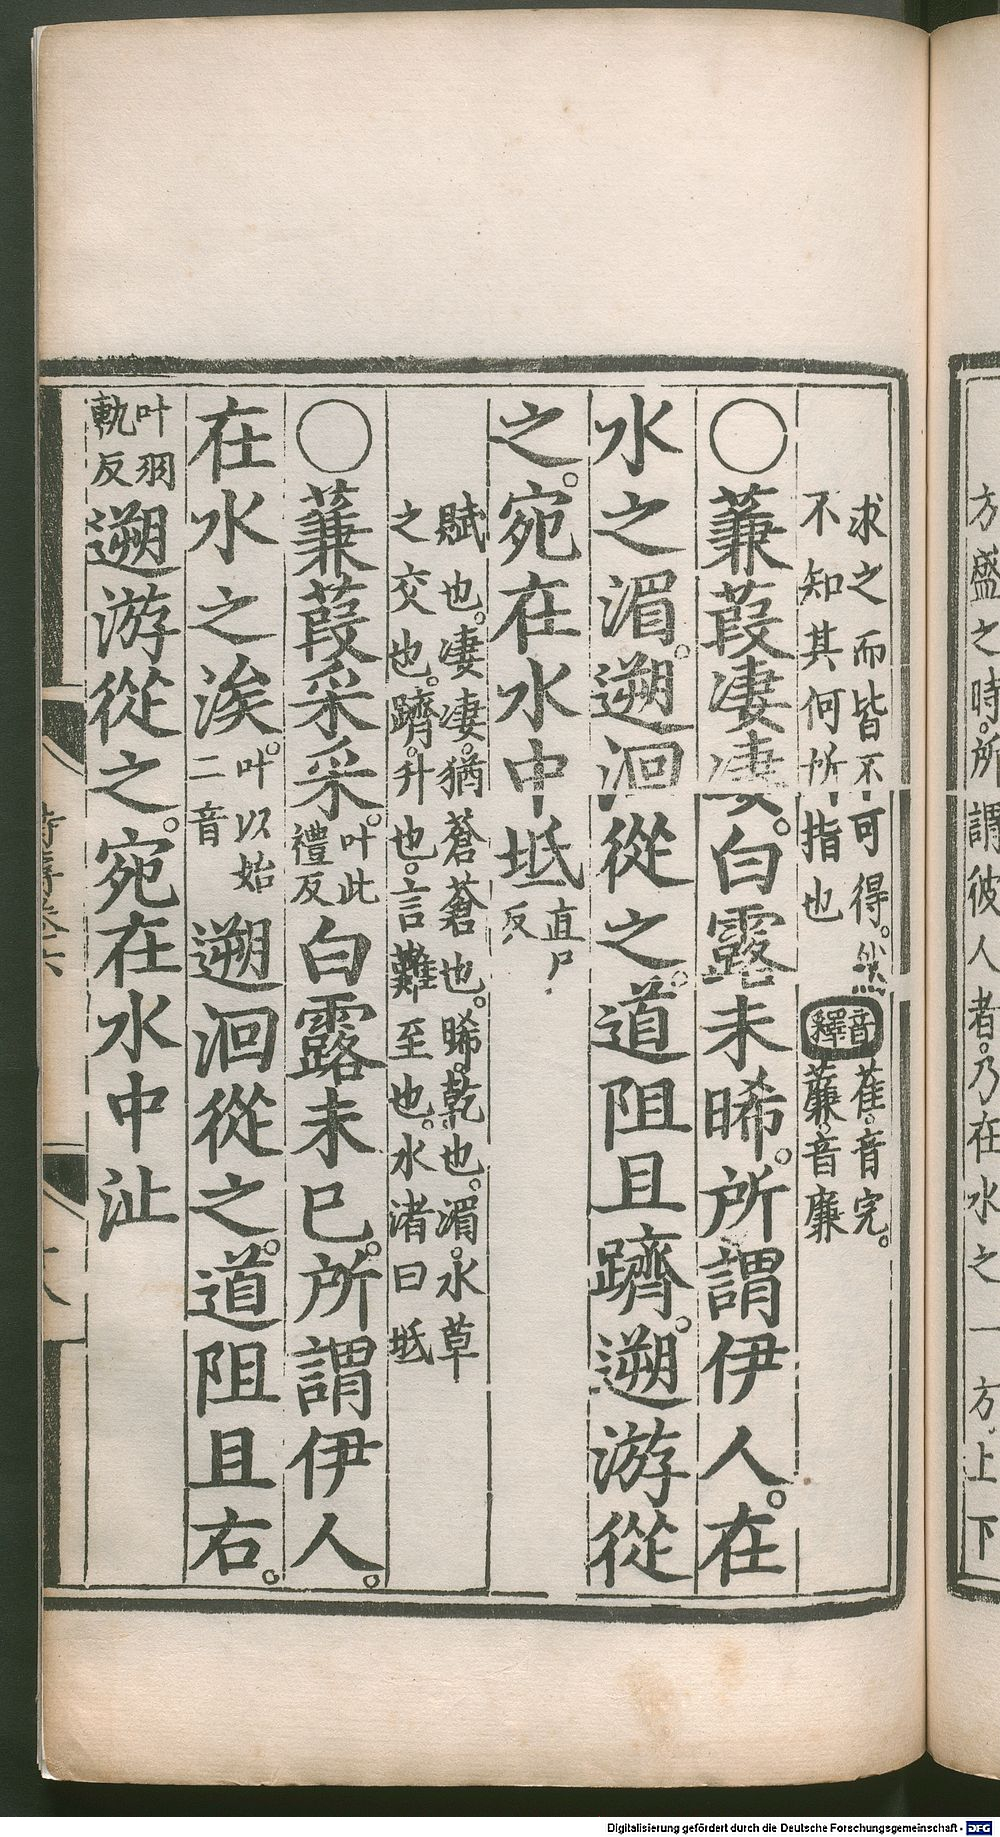 方盛之時。所謂彼人者。乃在水之一方。上下
求之而皆不可得。然
不知其何所指也
音釋
萑。音完。
蒹。音廉
〇蒹葭淒淒。白露未晞。所謂伊人。在
水之湄。遡洄從之。道阻且躋。遡游從
之。宛在水中坻
直尸
反
賦也。淒淒。猶蒼蒼也。晞。乾也。湄。水草
之交也。躋。升也。言難至也。水渚曰坻
〇蒹葭采采。
叶此
禮反
白露未已。所謂伊人。
在水之涘。
叶以始
二音
遡洄從之。道阻且右。
叶羽
軌反
遡游從之。宛在水中沚
Digitalisierung gefördert durch die Deutsche Forschungsgemeinschaft - DFG